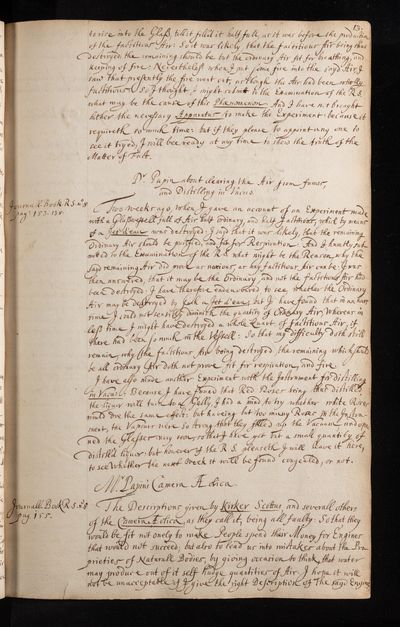 13.
to rise into the Glass, till it fill'd it half full, as it was before the production
of the factitious Air: So it was likely that the factitious Air being thus
destroyed the remaining should be but the ordinary Air fit for breathing, and
keeping of fire: Nevertheless when I put some fire into the said Air I
saw that presently the fire went out, as though the Air had been wholly
factitious. So I thought, I might submit to the Examination of the R.S.
what may be the cause of this Phænomenon. And I have not brought
hither the necessary Apparatus to make the Experiment: because it
requireth so much time: but if they please to appoint any one to
see it tryed, I will be ready at any time to shew the truth of the
Matter of Fact.
Dr. Papin about clearing the Air from fumes,
and Distilling in Vacuo.
Journall Book R.S.
pag. 153.
Two weeks ago, when I gave an account of an Experiment made
with a Glass full of Air half ordinary, and half factitious, which by means
of a Jet d'eau was destroyed: I said that it was likely, that the remaining
Ordinary Air should be purified, and fit for Respiration. And I humbly sub-
mitted to the Examination of the R.S. what might be the Reason why the
said remaining Air did prove as noxious, as any factitious Air can be: It was
then answered, that it may be the Ordinary and not the factitious Air had
been destroyed: I have therefore endeavoured to see whether the Ordinary
Air may be destroyed by such a Jet d'eau, but I have found that in an hours
time I could not sensibly diminish the quantity of Ordinary Air, Whereas in
less time I might have destroyed a whole Quart of factitious Air, if
there had been so much in the Vessell: So that my difficulty doth still
remain, why the factitious Air being destroyed, the remaining which should
be all ordinary Air doth not prove fit for respiration, and fire.
I have also made another Experiment with the Instrument for distilling
in Vacuo: Because I have found that Red Roses being thus distilled
the liquor will turn to a Gelly, I had a mind to try whether white Roses
would doe the same effect: but having put too many Roses in the Instru-
ment, the Vapours were so strong that they filled up the Vacuum and ope-
ned the Glasses very soon, so that I have got but a small quantity of
distill'd liquor: but however if the R.S. pleaseth I will leave it here,
to see whether the next week it will be found congealed, or not.
Mr. Papins Camera Æolica.
Journall Book R.S.
pag. 155.
The Descriptions given by Kirker Scottus, and severall others
of the Camera Æolica, as they call it, being all faulty: So that they
would be fit not onely to make People spend their Money for Engines
that would not succeed; but also to lead us into mistakes about the Pro-
prieties of Naturall Bodies, by giving occasion to think, that water
may produce out of it self hudge quantities of Air. I hope it will
not be unacceptable if I give the right Description of the said Engine